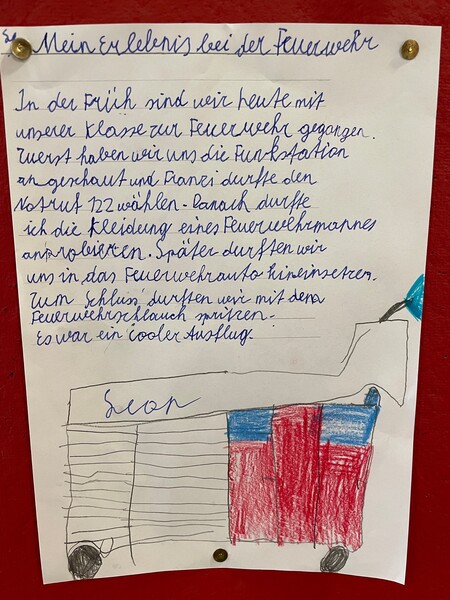 Mein Erlebnis bei der Feuerwehr
In der Früh sind wir heute mit
unserer Klasse zur Feuerwehr gegangen.
Zuerst haben wir uns die Funkstation
angeschaut und Franzi durfte den
Notruf 122 wählen. Danach durfte
ich die Kleidung eines Feuerwehrmannes
anprobieren. Später durften wir
uns in das Feuerwehrauto hineinsetzen.
Zum Schluss durften wir mit dem
Feuerwehrschlauch spritzen.
Es war ein cooler Ausflug.
Leon